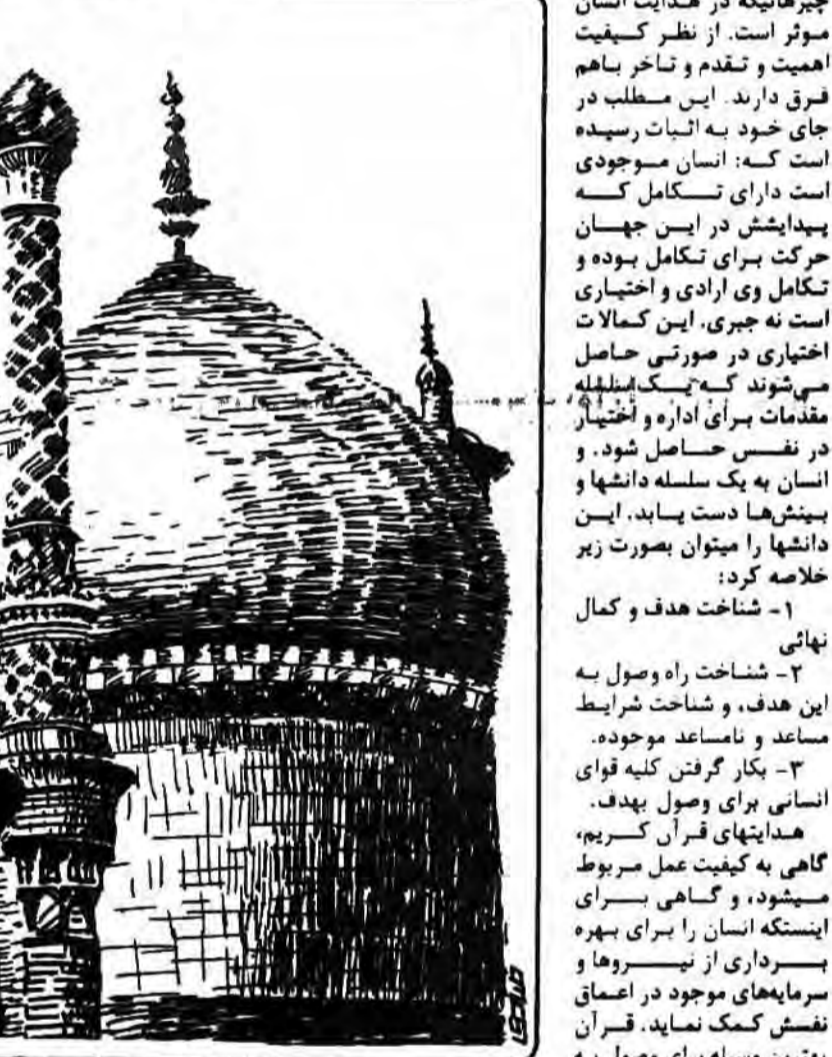 چیزهائیکه در هدایت انسان
موثر است. از نظر کیفیت
اهمیت و تقدم و تاخر باهم
فرق دارند. این مطلب در
جای خود به اثبات رسیده
است که: انسان موجودی
است دارای تکامل که
پیدایشش در این جهان
حرکت برای تکامل بوده و
تکامل وی ارادی و اختیاری
است نه جبری. این کمالات
اختیاری در صورتی حاصل
می‌شوند که یک
مقدمات برای اداره و اختیار
در نفس حاصل شود. و
انسان به یک سلسله دانشها و
بینش‌ها دست یابد. این
دانشها را میتوان بصورت زیر
خلاصه کرد:
۱- شناخت هدف و کمال
نهائی
۲- شناخت راه وصول به
این هدف، و شناخت شرایط
مساعد و نامساعد موجوده.
۳- بکار گرفتن کلیه قوای
انسانی برای وصول بهدف.
هدایتهای قرآن کریم،
گاهی به کیفیت عمل مربوط
میشود، و گاهی برای
اینستکه انسان را برای بهره
برداری از نیروها و
سرمایه‌های موجود در اعماق
نفسش کمک نماید. قرآن
بهترین وسیله برای وصول به